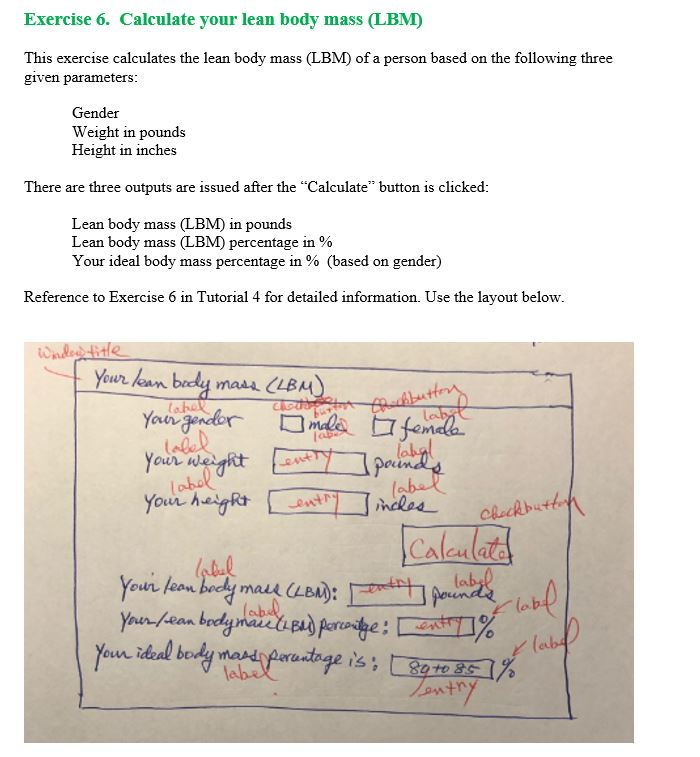 Exercise 6. Calculate your lean body mass (LBM)
This exercise calculates the lean body mass (LBM) of a person based on the following three
given parameters:
Gender
Weight in pounds
Height in inches
There are three outputs are issued after the “Calculate” button is clicked:
Lean body mass (LBM) in pounds
Lean body mass (LBM) percentage in %
Your ideal body mass percentage in % (based on gender)
Reference to Exercise 6 in Tutorial 4 for detailed information. Use the layout below.
Window title
Your lean body mass (LBM)
label button checkbutton label
Your gender male label female
label label
Your weight entry pounds
label label
Your height entry inches
checkbutton
Calculate
label
Your lean body mass (LBM): entry pounds label
label label
Your lean body mass (LBM) percentage: entry %
label
Your ideal body mass percentage is: 89 to 85 %
label entry